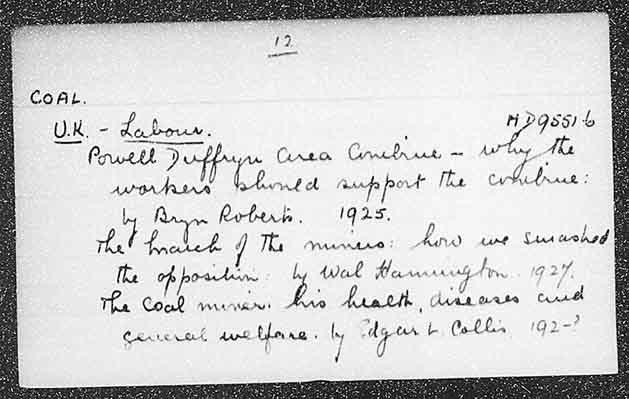 12
COAL.
U.K. - Labour. HD9551-6
Powell Duffryn Area Combine - why the
workers should support the combine:
by Bryn Roberts. 1925.
The march of the miners: how we smashed
the opposition: by Wal Hannington. 1927.
The coal miner. his health, diseases and
general welfare. by Edgar L. Collis 192-?